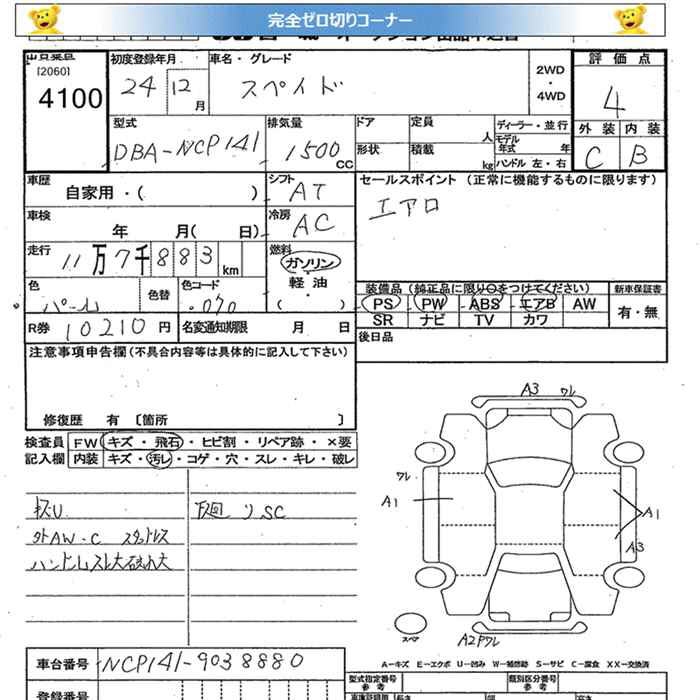 完全ゼロ切りコーナー
[2060]
4100
初度登録年月
24 12月
車名・グレード
スペイド
2WD
・
4WD
評価点
4
外装 内装
C B
型式
DBA-NCP141
排気量
1500 CC
ドア
定員 人
形状
積載 kg
ディーラー・並行
モデル年式 年
ハンドル 左・右
車歴
自家用・( )
シフト
AT
セールスポイント (正常に機能するものに限ります)
エアロ
車検
年 月( 日)
冷房
AC
走行
11万7千883km
燃料
ガソリン
軽油
( )
色
パール
色替
色コード
070
装備品 (純正品に限り○をつけてください)
PS PW ABS エアB AW
SR ナビ TV カワ
新車保証書
有・無
R券 10210円
名変通知期限 月 日
後日品
注意事項申告欄(不具合内容等は具体的に記入して下さい)
修復歴 有 〔箇所 〕
検査員
記入欄
FW キズ・飛石・ヒビ割・リペア跡・×要
内装 キズ・汚レ・コゲ・穴・スレ・キレ・破レ
外AW・C スタットレス
SC
A3 ワレ
ワレ
A1
A1
A3
スペア
A2 ワレ
A−キズ E−エクボ U−凹み W−補修跡 S−サビ C−腐食 XX−交換済
車台番号 NCP141-9038880
登録番号
型式指定番号
参考
類別区分番号
参考